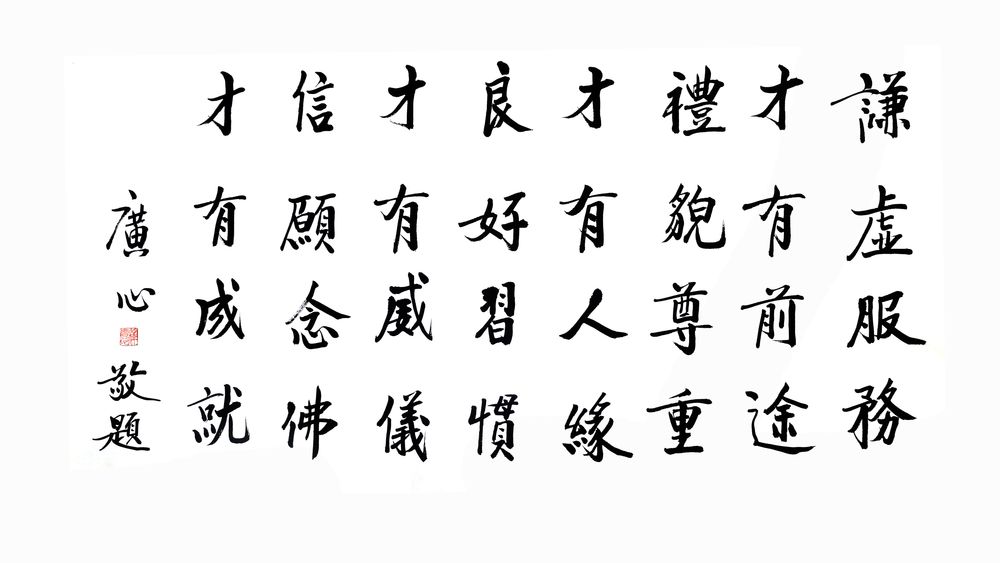 謙虛服務
才有前途
禮貌尊重
才有人緣
良好習慣
才有威儀
信願念佛
才有成就
廣心敬題